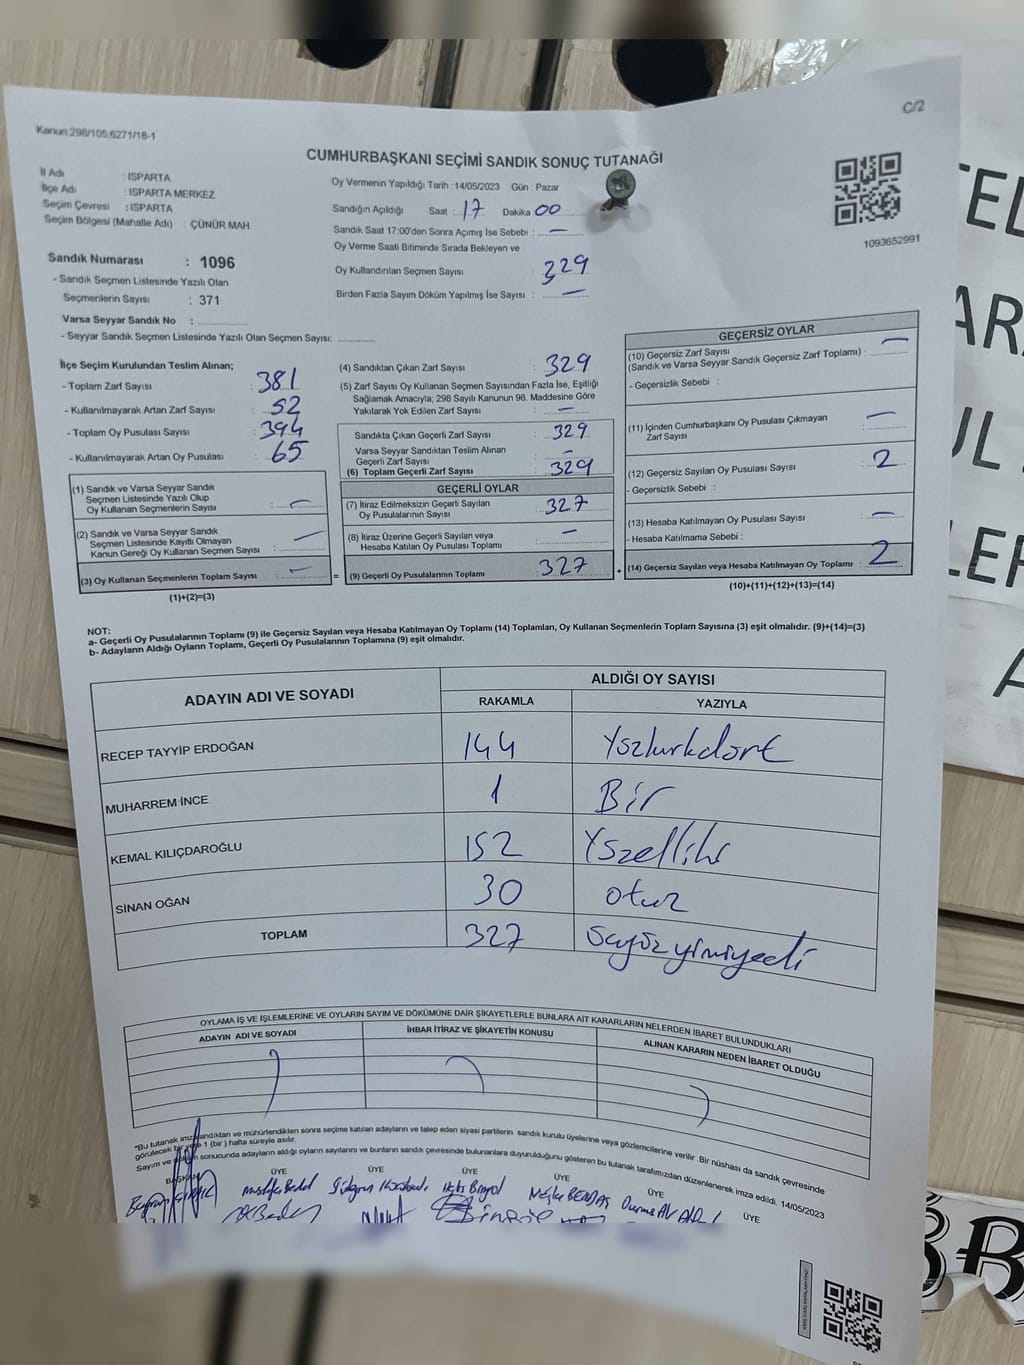 C/2
Kanun:298/105,6271/18-1
CUMHURBAŞKANI SEÇİMİ SANDIK SONUÇ TUTANAĞI
İl Adı : ISPARTA
İlçe Adı : ISPARTA MERKEZ
Seçim Çevresi : ISPARTA
Seçim Bölgesi (Mahalle Adı) : ÇÜNÜR MAH.
Oy Vermenin Yapıldığı Tarih : 14/05/2023 Gün : Pazar
Sandığın Açıldığı Saat : 17 Dakika 00
Sandık Saat 17:00'den Sonra Açımış İse Sebebi : —
Oy Verme Saati Bitiminde Sırada Bekleyen ve
Oy Kullandırılan Seçmen Sayısı : 329
Birden Fazla Sayım Döküm Yapılmış İse Sayısı : —
1093652991
Sandık Numarası : 1096
- Sandık Seçmen Listesinde Yazılı Olan
Seçmenlerin Sayısı : 371
Varsa Seyyar Sandık No :
- Seyyar Sandık Seçmen Listesinde Yazılı Olan Seçmen Sayısı:
İlçe Seçim Kurulundan Teslim Alınan;
- Toplam Zarf Sayısı : 381
- Kullanılmayarak Artan Zarf Sayısı : 52
- Toplam Oy Pusulası Sayısı : 394
- Kullanılmayarak Artan Oy Pusulası : 65
(1) Sandık ve Varsa Seyyar Sandık
Seçmen Listesinde Yazılı Olup
Oy Kullanan Seçmenlerin Sayısı : —
(2) Sandık ve Varsa Seyyar Sandık
Seçmen Listesinde Kayıtlı Olmayan
Kanun Gereği Oy Kullanan Seçmen Sayısı : —
(3) Oy Kullanan Seçmenlerin Toplam Sayısı : —
(1)+(2)=(3)
(4) Sandıktan Çıkan Zarf Sayısı : 329
(5) Zarf Sayısı Oy Kullanan Seçmen Sayısından Fazla İse, Eşitliği
Sağlamak Amacıyla; 298 Sayılı Kanunun 98. Maddesine Göre
Yakılarak Yok Edilen Zarf Sayısı : —
Sandıkta Çıkan Geçerli Zarf Sayısı : 329
Varsa Seyyar Sandıktan Teslim Alınan
Geçerli Zarf Sayısı : —
(6) Toplam Geçerli Zarf Sayısı : 329
GEÇERLİ OYLAR
(7) İtiraz Edilmeksizin Geçerli Sayılan
Oy Pusulalarının Sayısı : 327
(8) İtiraz Üzerine Geçerli Sayılan veya
Hesaba Katılan Oy Pusulası Toplamı : —
= (9) Geçerli Oy Pusulalarının Toplamı : 327
GEÇERSİZ OYLAR
(10) Geçersiz Zarf Sayısı
(Sandık ve Varsa Seyyar Sandık Geçersiz Zarf Toplamı) : —
- Geçersizlik Sebebi :
(11) İçinden Cumhurbaşkanı Oy Pusulası Çıkmayan
Zarf Sayısı : —
(12) Geçersiz Sayılan Oy Pusulası Sayısı : 2
- Geçersizlik Sebebi :
(13) Hesaba Katılmayan Oy Pusulası Sayısı : —
- Hesaba Katılmama Sebebi :
+ (14) Geçersiz Sayılan veya Hesaba Katılmayan Oy Toplamı : 2
(10)+(11)+(12)+(13)=(14)
NOT:
a- Geçerli Oy Pusulalarının Toplamı (9) ile Geçersiz Sayılan veya Hesaba Katılmayan Oy Toplamı (14) Toplamları, Oy Kullanan Seçmenlerin Toplam Sayısına (3) eşit olmalıdır. (9)+(14)=(3)
b- Adayların Aldığı Oyların Toplamı, Geçerli Oy Pusulalarının Toplamına (9) eşit olmalıdır.
ADAYIN ADI VE SOYADI
ALDIĞI OY SAYISI
RAKAMLA YAZIYLA
RECEP TAYYİP ERDOĞAN 144 Yszkurkdört
MUHARREM İNCE 1 Bir
KEMAL KILIÇDAROĞLU 152 Yszelliki
SİNAN OĞAN 30 otuz
TOPLAM 327
OYLAMA İŞ VE İŞLEMLERİNE VE OYLARIN SAYIM VE DÖKÜMÜNE DAİR ŞİKAYETLERLE BUNLARA AİT KARARLARIN NELERDEN İBARET BULUNDUKLARI
ADAYIN ADI VE SOYADI
İHBAR İTİRAZ VE ŞİKAYETİN KONUSU
ALINAN KARARIN NEDEN İBARET OLDUĞU
*Bu tutanak imzalandıktan ve mühürlendikten sonra seçime katılan adayların ve talep eden siyasi partilerin sandık kurulu üyelerine veya gözlemcilerine verilir. Bir nüshası da sandık çevresinde
görülecek bir yere 1 (bir) hafta süreyle asılır.
sonucunda adayların aldığı oyların sayılarını ve bunların sandık çevresinde bulunanlara duyurulduğunu gösteren bu tutanak tarafımızdan düzenlenerek imza edildi. 14/05/2023
BAŞKAN ÜYE ÜYE ÜYE ÜYE ÜYE ÜYE